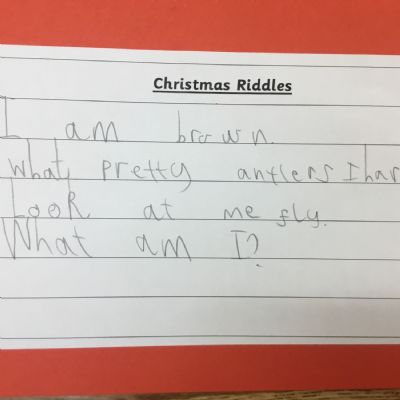 Christmas Riddles
I am brown.
What pretty antlers I hav
Look at me fly.
What am I?